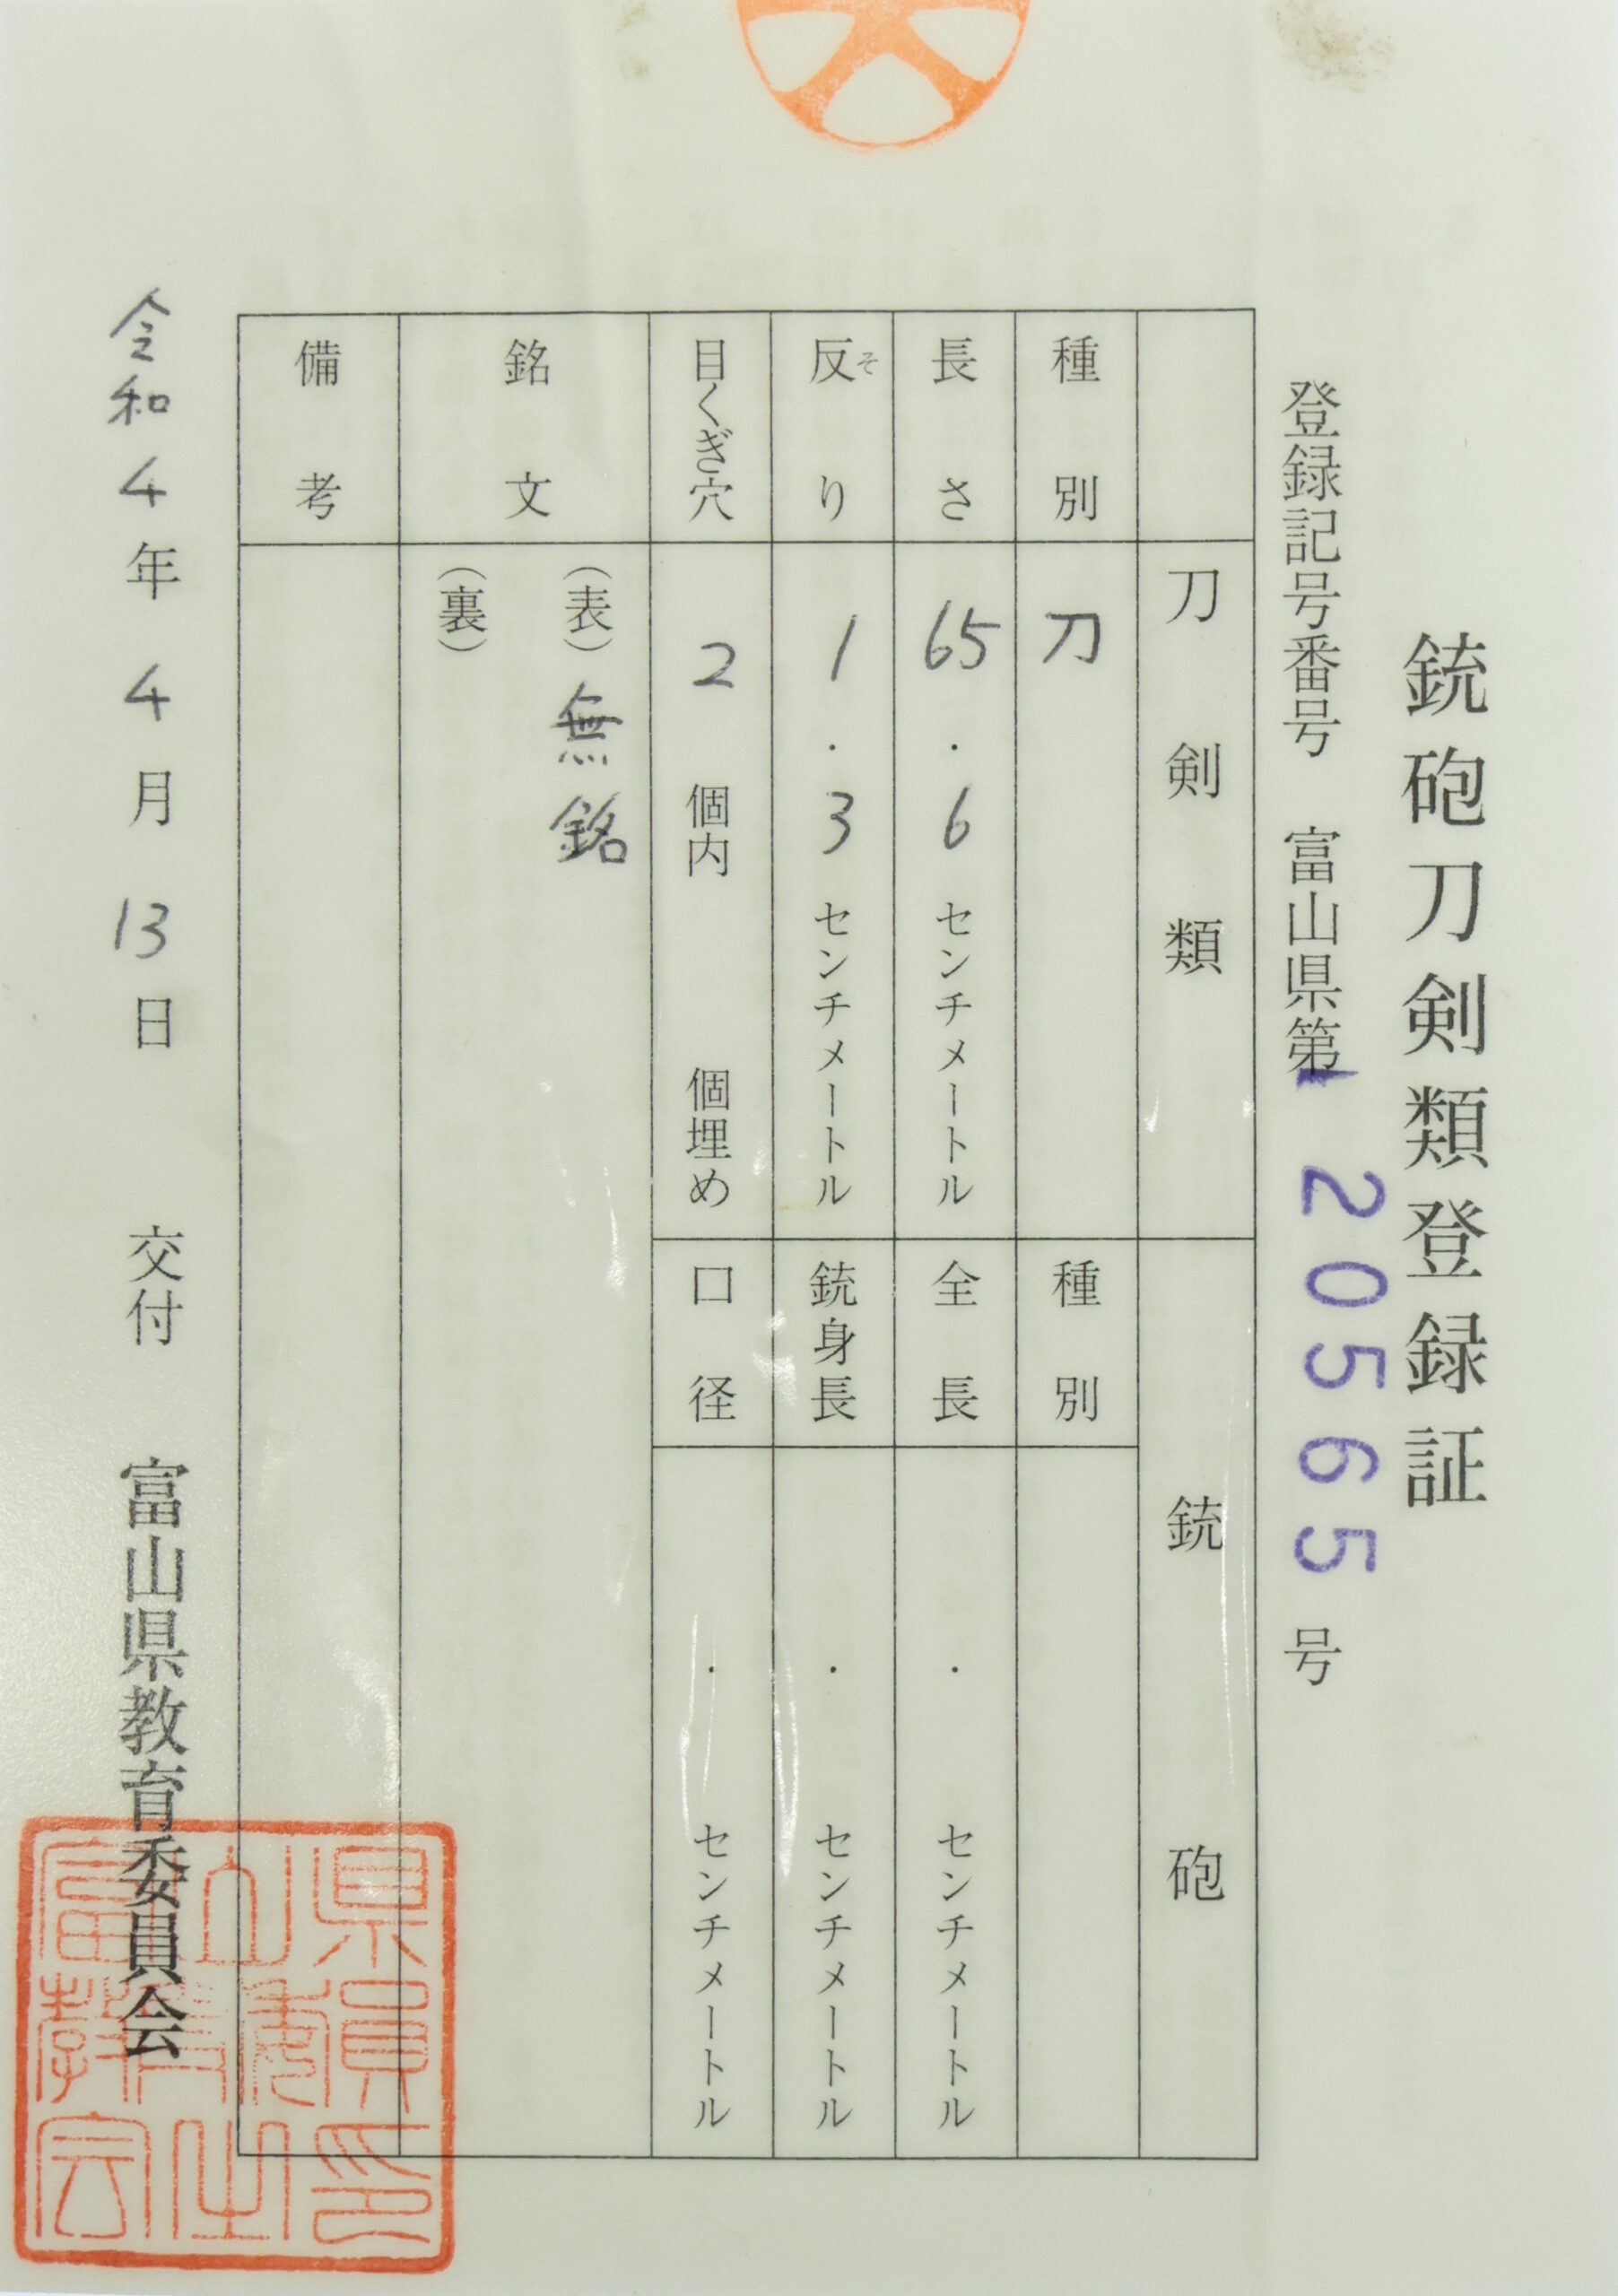 銃砲刀剣類登録証
登録記号番号 富山県第 20565 号
刀剣類 銃砲
種別 刀 種別
長さ 65.6 センチメートル 全長 . センチメートル
反り そ 1.3 センチメートル 銃身長 . センチメートル
目くぎ穴 2 個内 個埋め 口径 . センチメートル
銘文 (表) 無銘
(裏)
備考
令和4年4月13日 交付 富山県教育委員会